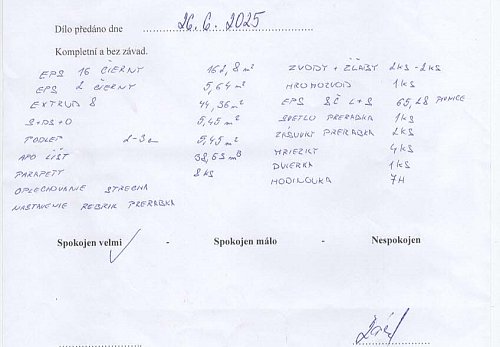 Dílo předáno dne 26.6.2025
Kompletní a bez závad.
EPS 16 ČIERNY 162,8 m²
EPS 2 ČIERNY 5,64 m²
EXTRUD 8 44,36 m²
S+DS+O 5,45 m²
PODLEP 2-3 c 5,45 m²
APU LIŠT 38,65 m
PARAPETY 8 KS
OPLECHOVANIE STRECHA
NASTAVENIE REBRIK PRERABKA
ZVODY + ŽĽABY 2KS - 2KS
HROMOZVOD 1KS
EPS SČ L+S 65,28
SVETLO PRERABKA 1KS
ZÁSUVKY PRERABKA 2KS
MRIEZKY 4KS
DVIERKA 1KS
HODINOVKA 7H
Spokojen velmi - Spokojen málo - Nespokojen